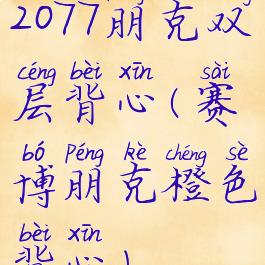 2077朋克双
céng bèi xīn sài
层背心(赛
bó Péng kè chéng sè
博朋克橙色
bèi xīn
背心)